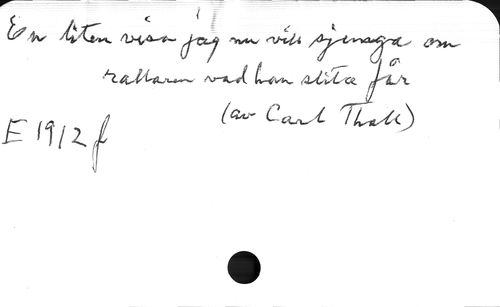 En liten visa jag nu vill sjunga om
rallaren vad han slita får
(av Carl Thall)
E 1912 f